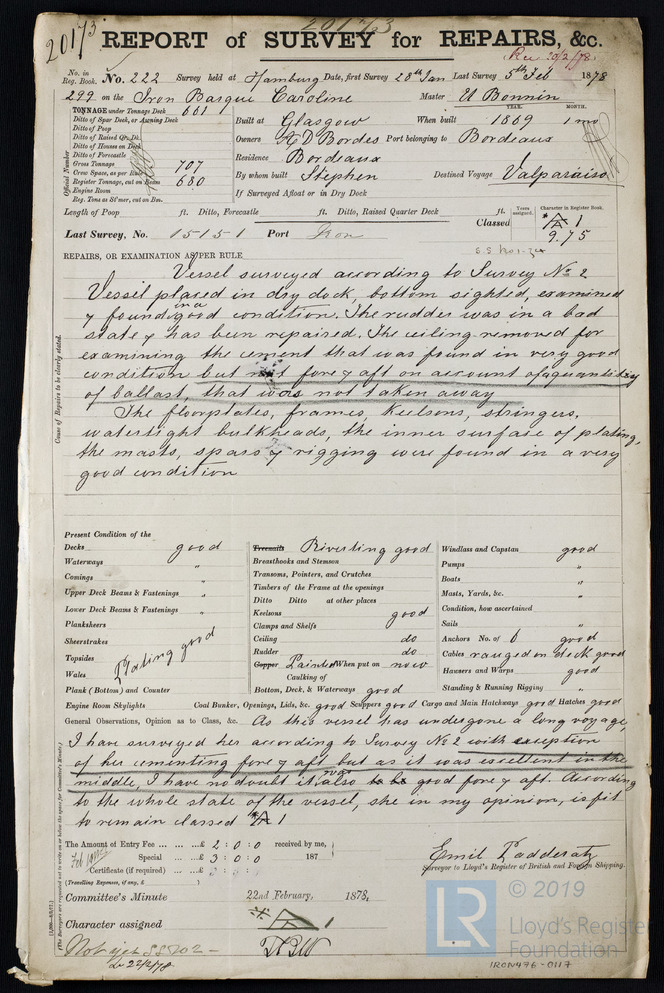 20173
20173
REPORT of SURVEY for REPAIRS, &c.
Rec 20/2/78
No. in Reg. Book. No. 222 Survey held at Hamburg Date, first Survey 28th Jan Last Survey 5th Feb 1878
299 on the Iron Barque Caroline Master U Bonnin
TONNAGE under Tonnage Deck 661
YEAR. MONTH.
Ditto of Spar Deck, or Awning Deck
Built at Glasgow When built 1869 1 mo
Ditto of Poop
Ditto of Raised Qr. Dk.
Owners A D Bordes Port belonging to Bordeaux
Ditto of Houses on Deck
Ditto of Forecastle
Residence Bordeaux
Gross Tonnage 707
Crew Space, as per Rule
By whom built Stephen Destined Voyage Valparaiso
Register Tonnage, cut on Beam 680
Engine Room
If Surveyed Afloat or in Dry Dock
Reg. Tons as St'mer, cut on Bm.
Official Number
Length of Poop ft. Ditto, Forecastle ft. Ditto, Raised Quarter Deck ft.
Years assigned. Character in Register Book.
Classed A 1
9.75
Last Survey, No. 15151 Port
REPAIRS, OR EXAMINATION AS PER RULE
Vessel surveyed according to Survey No 2
Vessel placed in dry dock, bottom sighted, examined
y found in a good condition. The rudder was in a bad
state y has been repaired. The ceiling removed for
examining the cement that was found in very good
condition but not fore y aft on account of a quantity
of ballast, that was not taken away
The floorplates, frames, keelsons, stringers,
watertight bulkheads, the inner surface of plating,
the masts, spars y rigging were found in a very
good condition
Cause of Repairs to be clearly stated.
Present Condition of the
Decks good
Waterways "
Comings "
Upper Deck Beams & Fastenings "
Lower Deck Beams & Fastenings "
Planksheers
Sheerstrakes
Topsides
Wales Plating good
Plank (Bottom) and Counter
Treenails Rivetting good
Breasthooks and Stemson
Transoms, Pointers, and Crutches
Timbers of the Frame at the openings
Ditto Ditto at other places
Keelsons good
Clamps and Shelfs
Ceiling do
Rudder do
Copper Painted When put on now
Caulking of
Bottom, Deck, & Waterways good
Windlass and Capstan good
Pumps "
Boats "
Masts, Yards, &c. "
Condition, how ascertained
Sails "
Anchors No. of 6 good
Cables ranged on deck good
Hawsers and Warps good
Standing & Running Rigging "
Engine Room Skylights Coal Bunker, Openings, Lids, &c. good Scuppers good Cargo and Main Hatchways good Hatches good
General Observations, Opinion as to Class, &c. As this vessel has undergone a long voyage,
I have surveyed her according to Survey No 2 with exception
of her cementing fore y aft but as it was excellent in the
middle, I have no doubt it was also to be good fore y aft. According
to the whole state of the vessel, she in my opinion, is fit
to remain classed A 1
(The Surveyors are requested not to write on or below the space for Committee's Minute.)
The Amount of Entry Fee ... ... ...£ 2 : 0 : 0 received by me,
Special ... ...£ 3 : 0 : 0 187
Certificate (if required) ... ...£
(Travelling Expenses, if any, £ )
Emil Padderatz
Surveyor to Lloyd's Register of British and Foreign Shipping.
Committee's Minute 22nd February, 1878,
Character assigned A 1
Not yet SS No 2 -
22/2/78
© 2019
LR
Lloyd's Register
Foundation
IRON476-0117